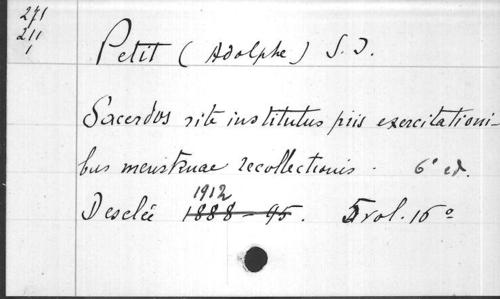 271
211
1
Petit (Adolphe) S. J.
Sacerdos rite institutus piis exercitationi-
bus menstruae recollectionis. 6ª ed.
1912
Desclée 1888-95. 5 vol. 16º